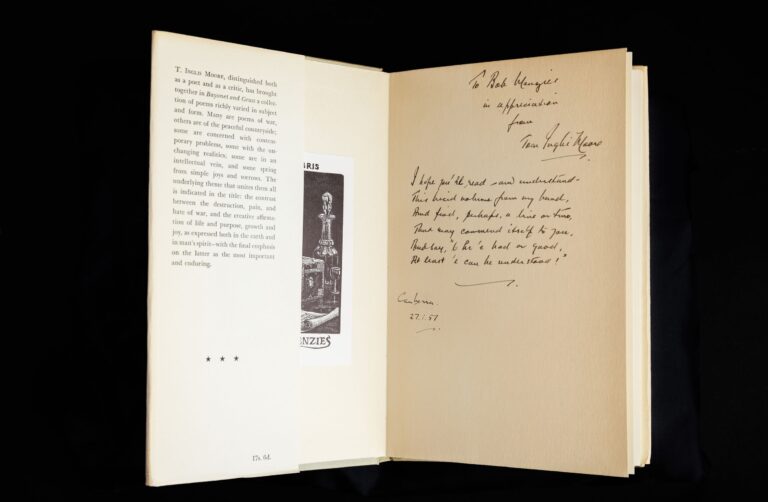 T. INGLIS MOORE, distinguished both
as a poet and as a critic, has brought
together in Bayonet and Grass a collec-
tion of poems richly varied in subject
and form. Many are poems of war,
others are of the peaceful countryside;
some are concerned with contem-
porary problems, some with the un-
changing realities, some are in an
intellectual vein, and some spring
from simple joys and sorrows. The
underlying theme that unites them all
is indicated in the title: the contrast
between the destruction, pain, and
hate of war, and the creative affirma-
tion of life and purpose, growth and
joy, as expressed both in the earth and
in man's spirit—with the final emphasis
on the latter as the most important
and enduring.
★ ★ ★
17s. 6d.
BRIS
ENZIES
To Bob Menzies
in appreciation
from
Tom Inglis Moore
I hope you'll read and understand
This volume from my hand,
And find, perhaps, a line or two,
That may commend itself to you,
And say, " he's bad or good,
At least 'e can be understood!"
Canberra
27.1.57